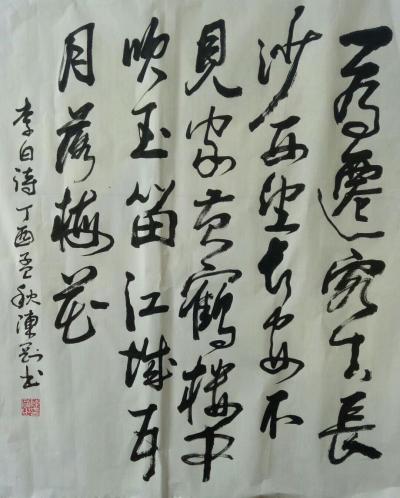 一為遷客去長
沙西望长安不
見家黄鶴樓中
吹玉笛江城五
月落梅花
李白詩丁酉孟秋陳剛书